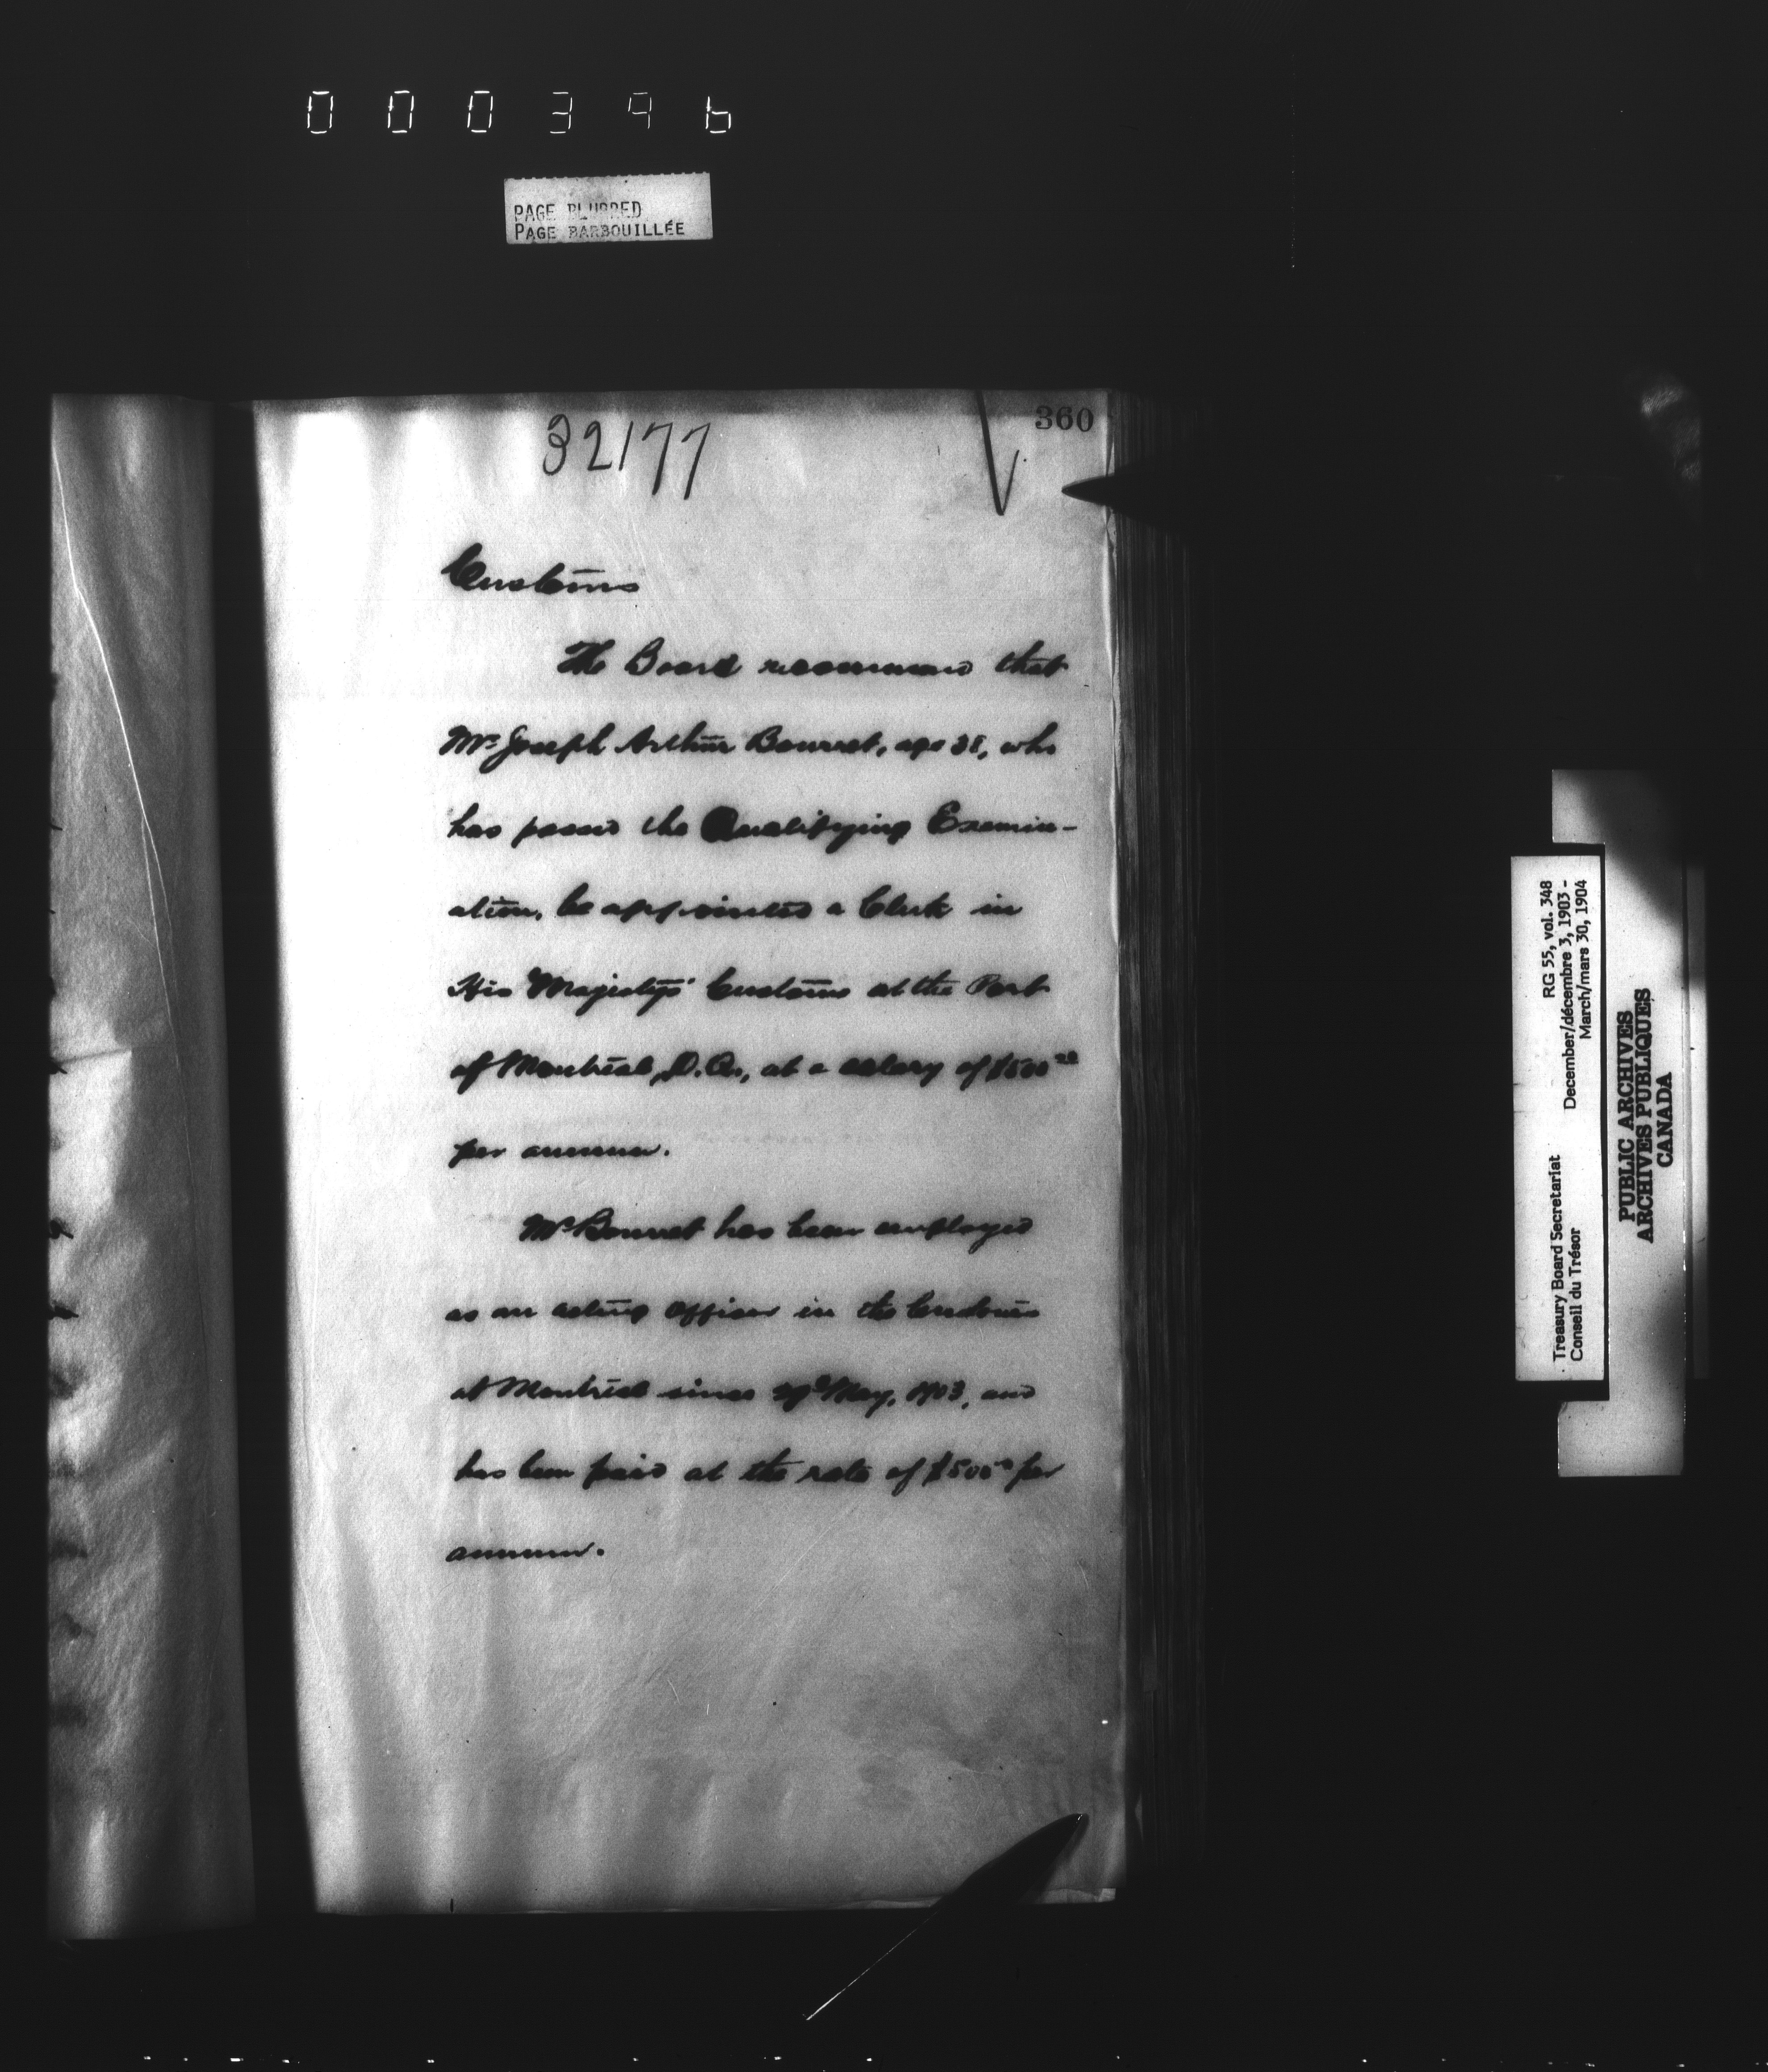 000396
PAGE BLURRED
PAGE BARBOUILLÉE
360
32177
Customs
The Board recommend that
Mr Joseph Arthur Bourret, age 38, who
has passed the Qualifying Examin-
ation, be appointed a Clerk in
His Majesty's Customs at the Port
of Montreal, P.Q., at a salary of $500 00
per annum.
Mr Bourret has been employed
as an acting officer in the Customs
at Montreal since May, 1903, and
has been paid at the rate of $500 00 per
annum.
Treasury Board Secretariat RG 55, vol. 348
Conseil du Trésor December/décembre 3, 1903 -
March/mars 30, 1904
PUBLIC ARCHIVES
ARCHIVES PUBLIQUES
CANADA